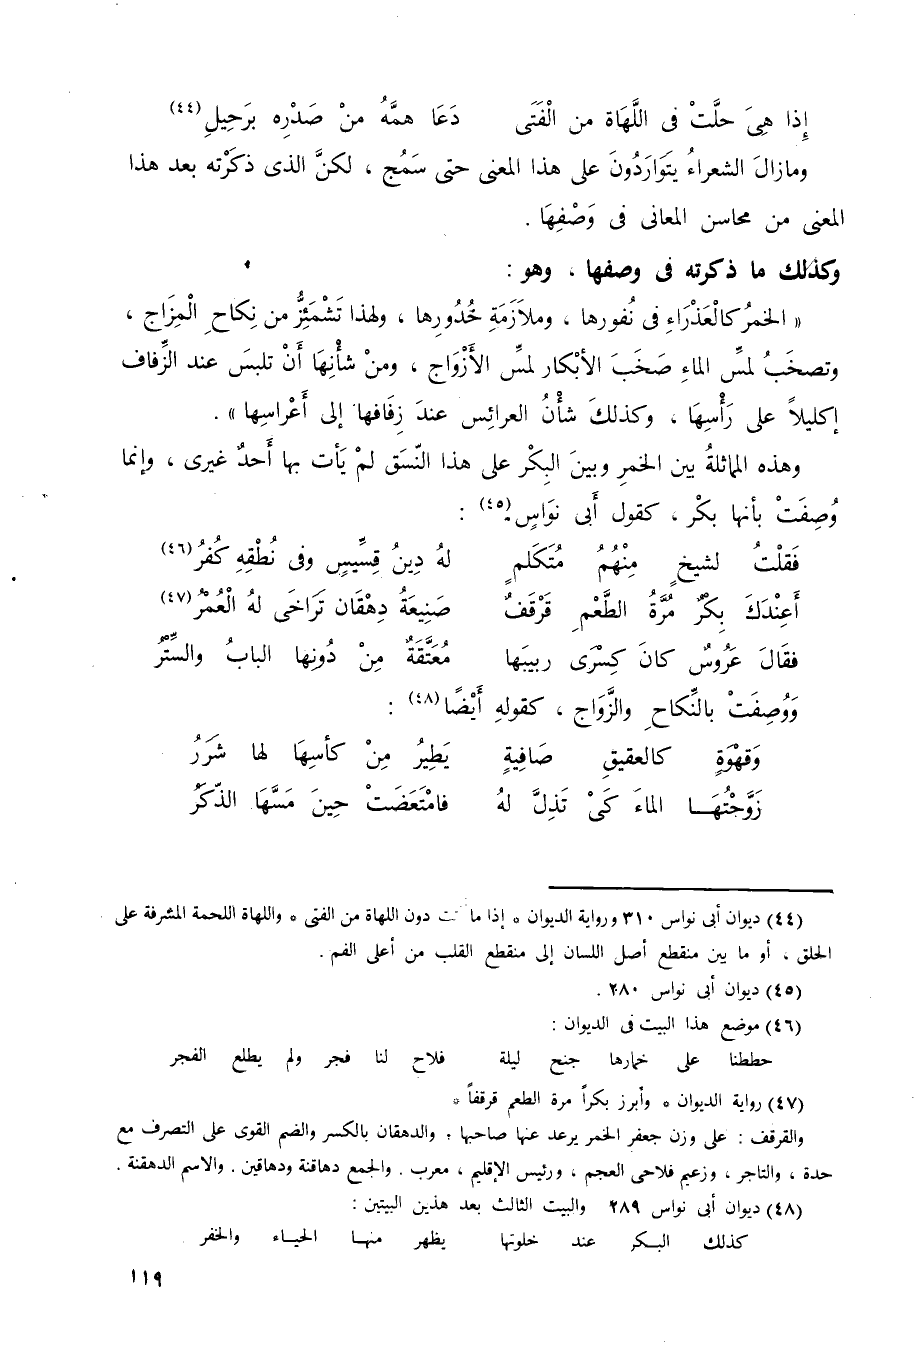 إِذا هِىَ حلَّتْ فى اللَّهَاة من الْفَتَى دَعَا همَّهُ منْ صَدْرِه بَرَحِيلِ(٤٤)
ومازالَ الشعراءُ يتَوارَدُونَ على هذا المعنى حتى سَمُج ، لكنَّ الذى ذكرْته بعد هذا
المعنى من محاسن المعانى فى وَصْفِهَا .
وكذلك ما ذكرته فى وصفها ، وهو :
« الخمرُ كالْعَذْرَاءِ فى نُفورها ، وملاَزَمَةِ خُدُورِها ، ولهذا تَشْمَئِزُّ من نِكاحِ الْمِزَاج ،
وتصخَبُ لمسِّ الماءِ صَخَبَ الأبْكار لمسِّ الأَزْوَاج ، ومنْ شأْنِهَا أَنْ تلبسَ عند الزِّفاف
إكليلاً على رَأْسِهَا ، وكذلكَ شأْنُ العرائس عندَ زِفَافها إلى أَعْراسِها » .
وهذه المماثلةُ بين الخمرِ وبينَ البِكْر على هذا النّسَق لمْ يَأت بها أَحدٌ غيرى ، وإنما
وُصِفَتْ بأنها بكْر ، كقول أَبى نوَاسٍ(٤٥) :
فَقلْتُ لشيخٍ مِنْهُمُ مُتَكَلمٍ لهُ دِينُ قِسِّيسٍ وفى نُطْقِهِ كُفْرُ(٤٦)
أَعِنْدَكَ بِكْرٌ مُرَّةُ الطَّعْمِ قَرْقَفٌ صَنِيعَةُ دِهْقَان تَرَاخَى لهُ الْعُمْرُ(٤٧)
فقَالَ عَرُوسٌ كانَ كِسْرَى ربيبَها مُعَتَّقَةٌ مِنْ دُونِها البابُ والسِّتْرُ
وَوُصِفَتْ بالنِّكاحِ والزَّوَاج ، كقولهِ أَيْضًا(٤٨) :
وَقهْوَةٍ كالعقيقِ صَافِيةٍ يَطِيرُ مِنْ كأسِهَا لها شَرَرُ
زَوَّجْتُهَــا الماءَ كَىْ تَذِلَّ لهُ فامْتَعَضَتْ حِينَ مَسَّهَا الذّكَرُ
(٤٤) ديوان أبى نواس ٣١٠ ورواية الديوان * إذا ما دون اللهاة من الفتى * واللهاة اللحمة المشرفة على
الحلق ، أو ما بين منقطع أصل اللسان إلى منقطع القلب من أعلى الفم .
(٤٥) ديوان أبى نواس ٢٨٠ .
(٤٦) موضع هذا البيت فى الديوان :
حططنا على خمارها جنح ليلة فلاح لنا فجر ولم يطلع الفجر
(٤٧) رواية الديوان * وأبرز بكراً مرة الطعم قرقفاً *
والقرقف : على وزن جعفر الخمر يرعد عنها صاحبها ، والدهقان بالكسر والضم القوى على التصرف مع
حدة ، والتاجر ، وزعيم فلاحى العجم ، ورئيس الإقليم ، معرب . والجمع دهاقنة ودهاقين . والاسم الدهقنة .
(٤٨) ديوان أبى نواس ٢٨٩ والبيت الثالث بعد هذين البيتين :
كذلك البــكر عند خلوتها يظهر منهــا الحيــاء والخفر
١١٩